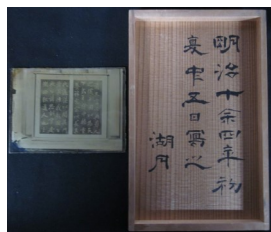 明治十余四年初
夏中五日写之
湖月